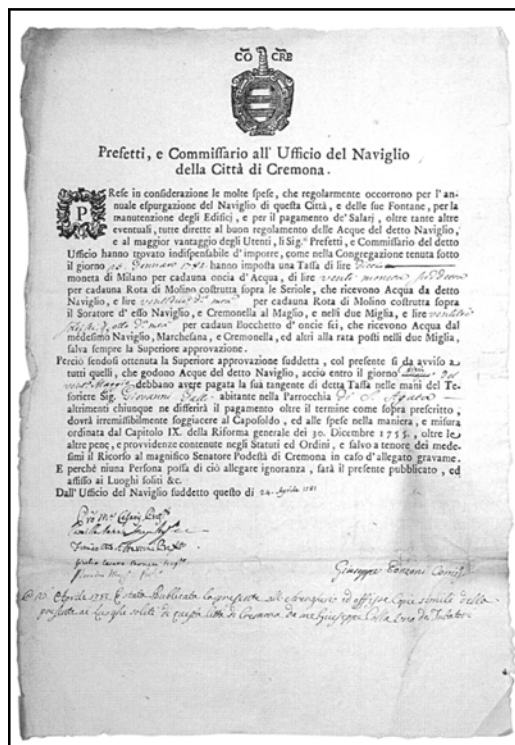 CO CRE
Prefetti, e Commissario all' Ufficio del Naviglio
della Città di Cremona.
PRese in considerazione le molte spese, che regolarmente occorrono per l'an-
nuale espurgazione del Naviglio di questa Città, e delle sue Fontane, per la
manutenzione degli Edificj, e per il pagamento de' Salarj, oltre tante altre
eventuali, tutte dirette al buon regolamento delle Acque del detto Naviglio,
e al maggior vantaggio degli Utenti, li Sig.ri Prefetti, e Commissario del detto
Ufficio hanno trovato indispensabile d'imporre, come nella Congregazione tenuta sotto
il giorno hanno imposta una Tassa di lire
moneta di Milano per cadauna oncia d'Acqua, di lire venti moneta suddetta
per cadauna Rota di Molino costrutta sopra le Seriole, che ricevono Acqua da detto
Naviglio, e lire per cadauna Rota di Molino costrutta sopra
il Soratore d'esso Naviglio, e Cremonella al Maglio, e nelli due Miglia, e lire
per cadaun Bocchetto d'oncie sei, che ricevono Acqua dal
medesimo Naviglio, Marchesana, e Cremonella, ed altri alla rata posti nelli due Miglia,
salva sempre la Superiore approvazione.
Perciò sendosi ottenuta la Superiore approvazione suddetta, col presente si dà avviso a
tutti quelli, che godono Acque del detto Naviglio, acciò entro il giorno
debbano avere pagata la sua tangente di detta Tassa nelle mani del Te-
soriere Sig. Giovanni abitante nella Parrocchia di S. Agata
altrimenti chiunque ne differirà il pagamento oltre il termine come sopra prescritto,
dovrà irremissibilmente soggiacere al Caposoldo, ed alle spese nella maniera, e misura
ordinata dal Capitolo IX. della Riforma generale dei 30. Dicembre 1755., oltre le
altre pene, e provvidenze contenute negli Statuti ed Ordini, e salvo a tenore dei mede-
simi il Ricorso al magnifico Senatore Podestà di Cremona in caso d'allegato gravame.
E perchè niuna Persona possa di ciò allegare ignoranza, sarà il presente pubblicato, ed
affisso ai Luoghi soliti &c.
Dall' Ufficio del Naviglio suddetto questo dì 24. Aprile 1781
Giuseppe Conf.
Aprile è stato Publicata la presente ed affissa Copia simile della
presente ai Luoghi soliti di questa Città di Cremona da me Giuseppe